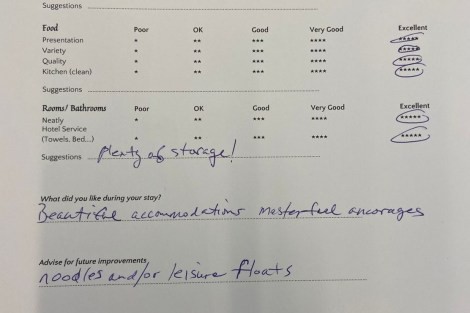 Suggestions
Food Poor OK Good Very Good Excellent
Presentation * ** *** **** *****
Variety * ** *** **** *****
Quality * ** *** **** *****
Kitchen (clean) * ** *** **** *****
Suggestions
Rooms/ Bathrooms Poor OK Good Very Good Excellent
Neatly * ** *** **** *****
Hotel Service
(Towels, Bed...) * ** *** **** *****
Suggestions plenty of storage!
What did you like during your stay?
Beautiful accommodations masterful ancorages
Advise for future improvements
noodles and/or leisure floats